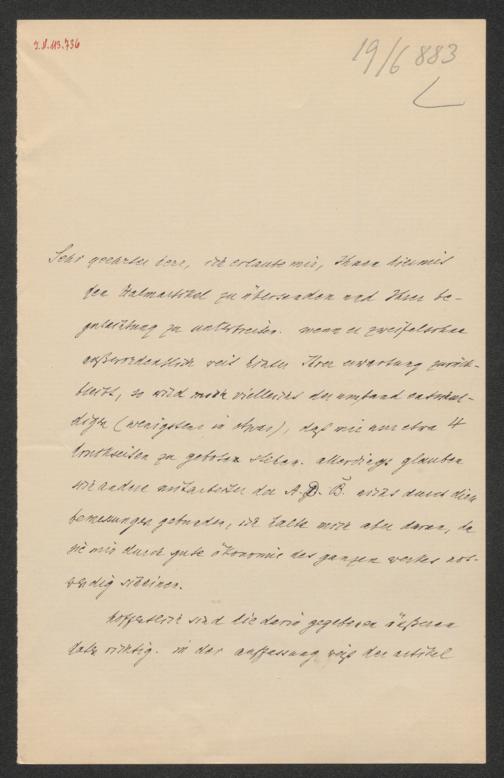 I.N.113.736
19/6 883
Sehr geehrter herr, ich erlaube mir, Ihnen hiermit
den Halmartikel zu übersenden und Ihrer be-
gutachtung zu unterbreiten. wenn er zweifelsohne
außerordentlich weit hinter Ihrer erwartung zurück-
bleibt, so wird mich vielleicht der umstand entschul-
digen (wenigstens in etwas), daß mir nur etwa 4
druckseiten zu gebote stehen. allerdings glauben
sich andere mitarbeiter der A. D. B. nicht durch diese
bemessungen gebunden, ich halte mich aber daran, da
sie mir durch gute ökonomie des ganzen werkes not-
wendig scheinen.
hoffentlich sind die darin gegebenen äußeren
data richtig. in der auffassung weiß der artikel